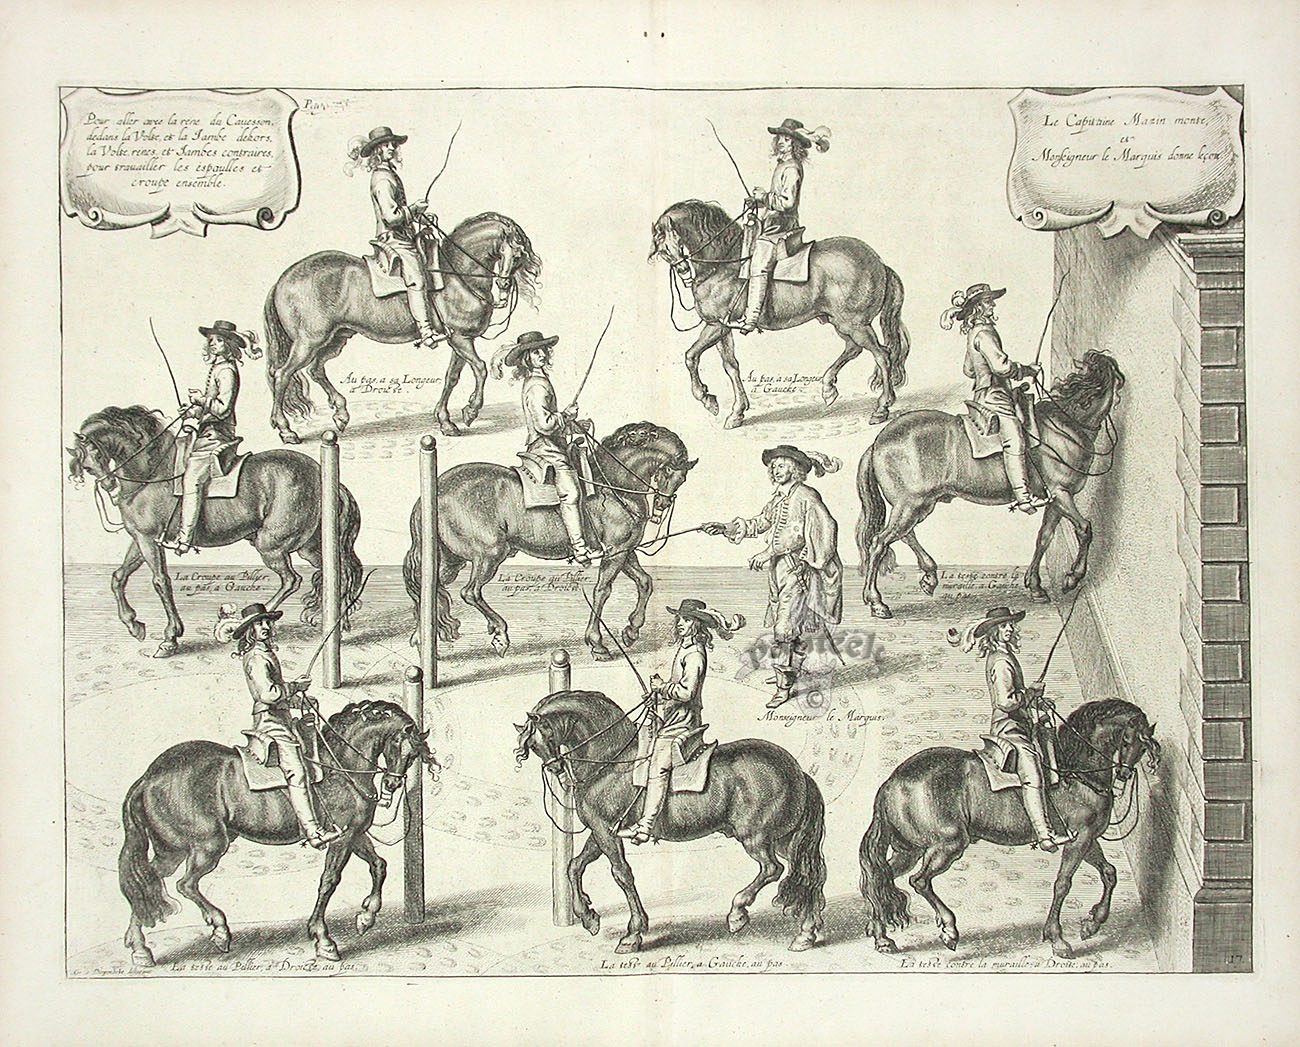 Pour aller avec la rene du Cavesson,
dedans la Volte, et la Jambe dehors,
la Volte, renes, et Jambes contraires,
pour travailler les espaulles et
croupe ensemble.
Le Capitaine Mazin monte,
et
Monseigneur le Marquis donne leçon
Au pas, a sa Longeur,
à Droicte.
Au pas, a sa Longeur
à Gauche.
La Croupe au Pillier,
au pas, à Gauche.
La Croupe au Pillier,
au pas, à Droicte.
La teste contre la
muraille, à Gauche
au pas.
Monseigneur le Marquis.
La teste au Pillier, à Droicte, au pas.
La teste au Pillier, à Gauche, au pas.
La teste contre la muraille, à Droite, au pas.
17
panteek
©